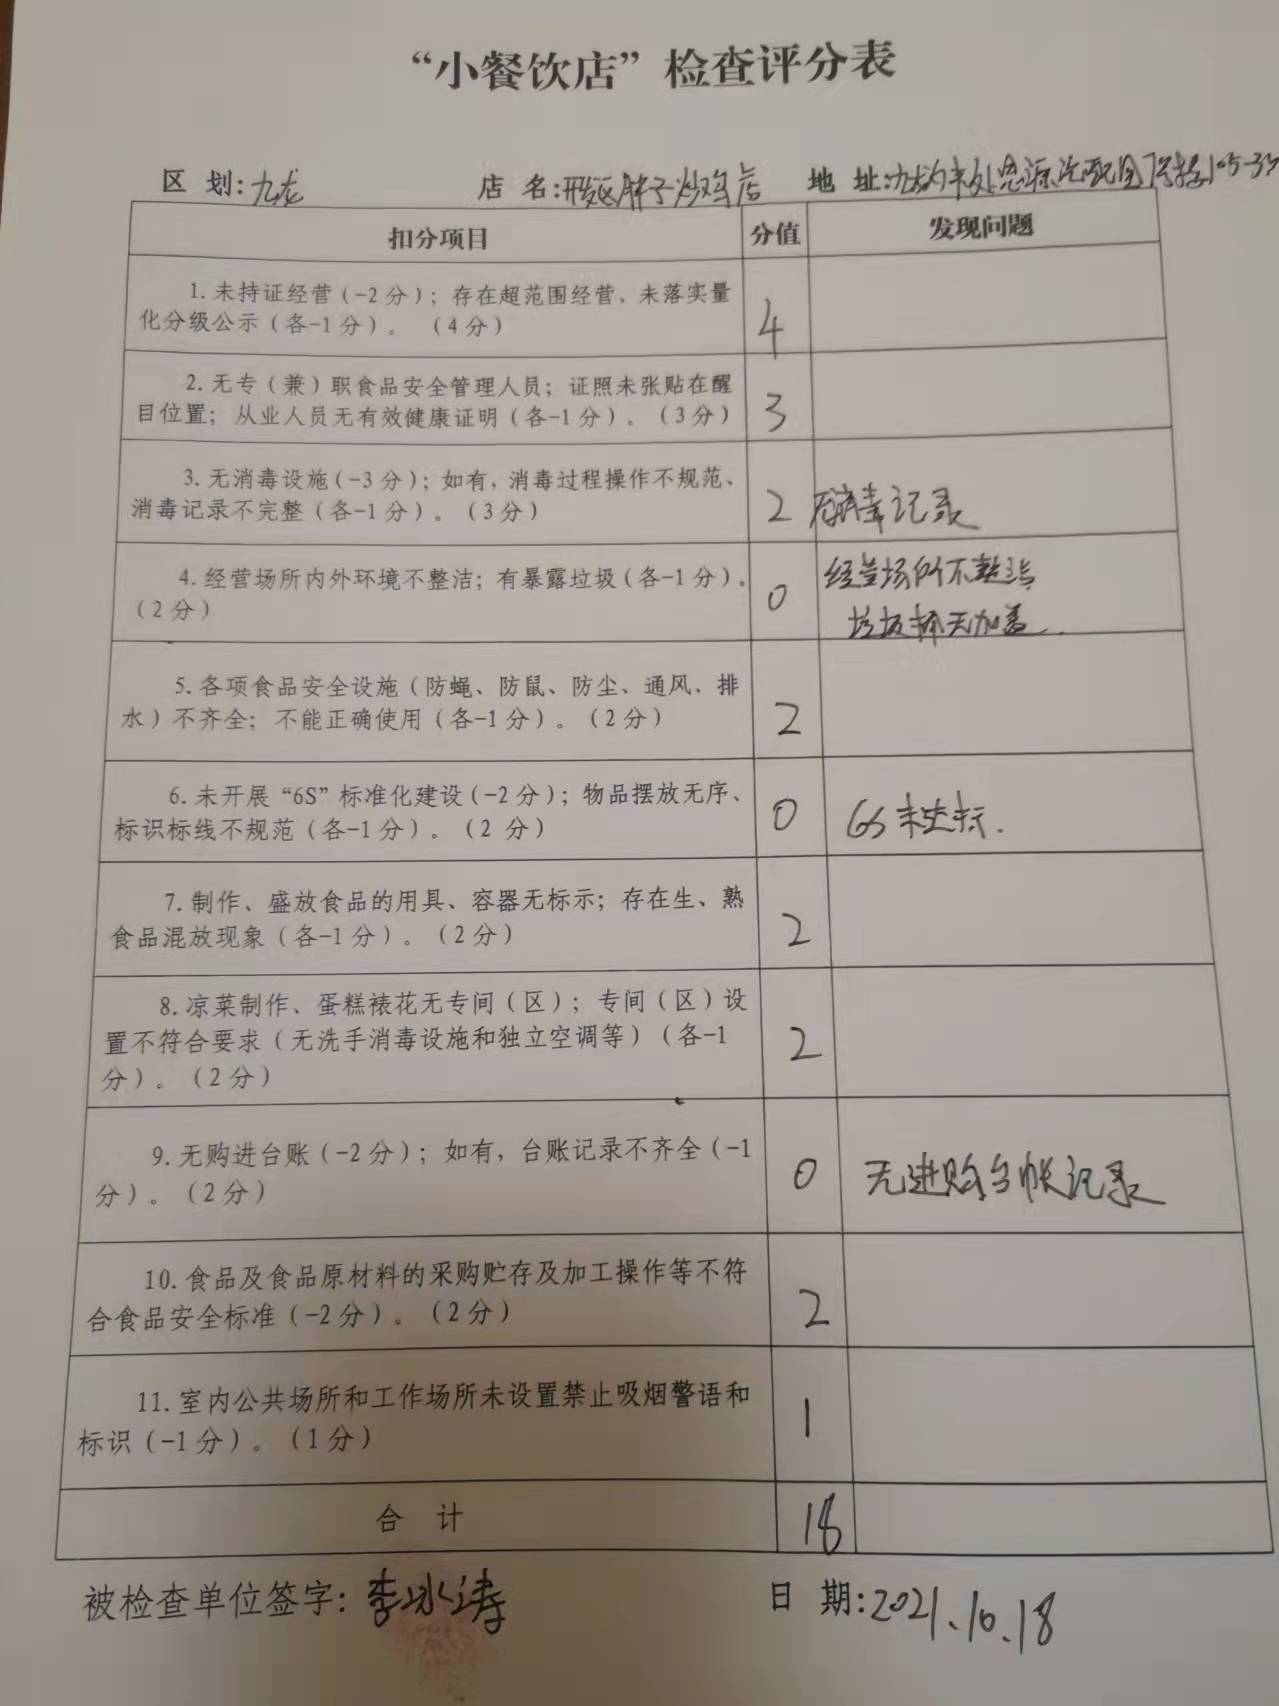 “小餐饮店”检查评分表
区 划:九龙 店 名: 胖子炒鸡店 地 址:
扣分项目 分值 发现问题
1.未持证经营(-2分);存在超范围经营、未落实量
化分级公示(各-1分)。(4分)
4
2.无专(兼)职食品安全管理人员;证照未张贴在醒
目位置;从业人员无有效健康证明(各-1分)。(3分)
3
3.无消毒设施(-3分);如有,消毒过程操作不规范、
消毒记录不完整(各-1分)。(3分)
2 无消毒记录
4.经营场所内外环境不整洁;有暴露垃圾(各-1分)。
(2分)
0 经营场所不整洁
垃圾桶无加盖.
5.各项食品安全设施(防蝇、防鼠、防尘、通风、排
水)不齐全;不能正确使用(各-1分)。(2分)
2
6.未开展“6S”标准化建设(-2分);物品摆放无序、
标识标线不规范(各-1分)。(2 分)
0 6S未达标.
7.制作、盛放食品的用具、容器无标示;存在生、熟
食品混放现象(各-1分)。(2分)
2
8.凉菜制作、蛋糕裱花无专间(区);专间(区)设
置不符合要求(无洗手消毒设施和独立空调等)(各-1
分)。(2分)
2
9.无购进台账(-2分);如有,台账记录不齐全(-1
分)。(2分)
0 无进购台帐记录
10.食品及食品原材料的采购贮存及加工操作等不符
合食品安全标准(-2分)。(2分)
2
11.室内公共场所和工作场所未设置禁止吸烟警语和
标识(-1分)。(1分)
1
合 计 18
被检查单位签字:李冰涛 日 期:2021.10.18